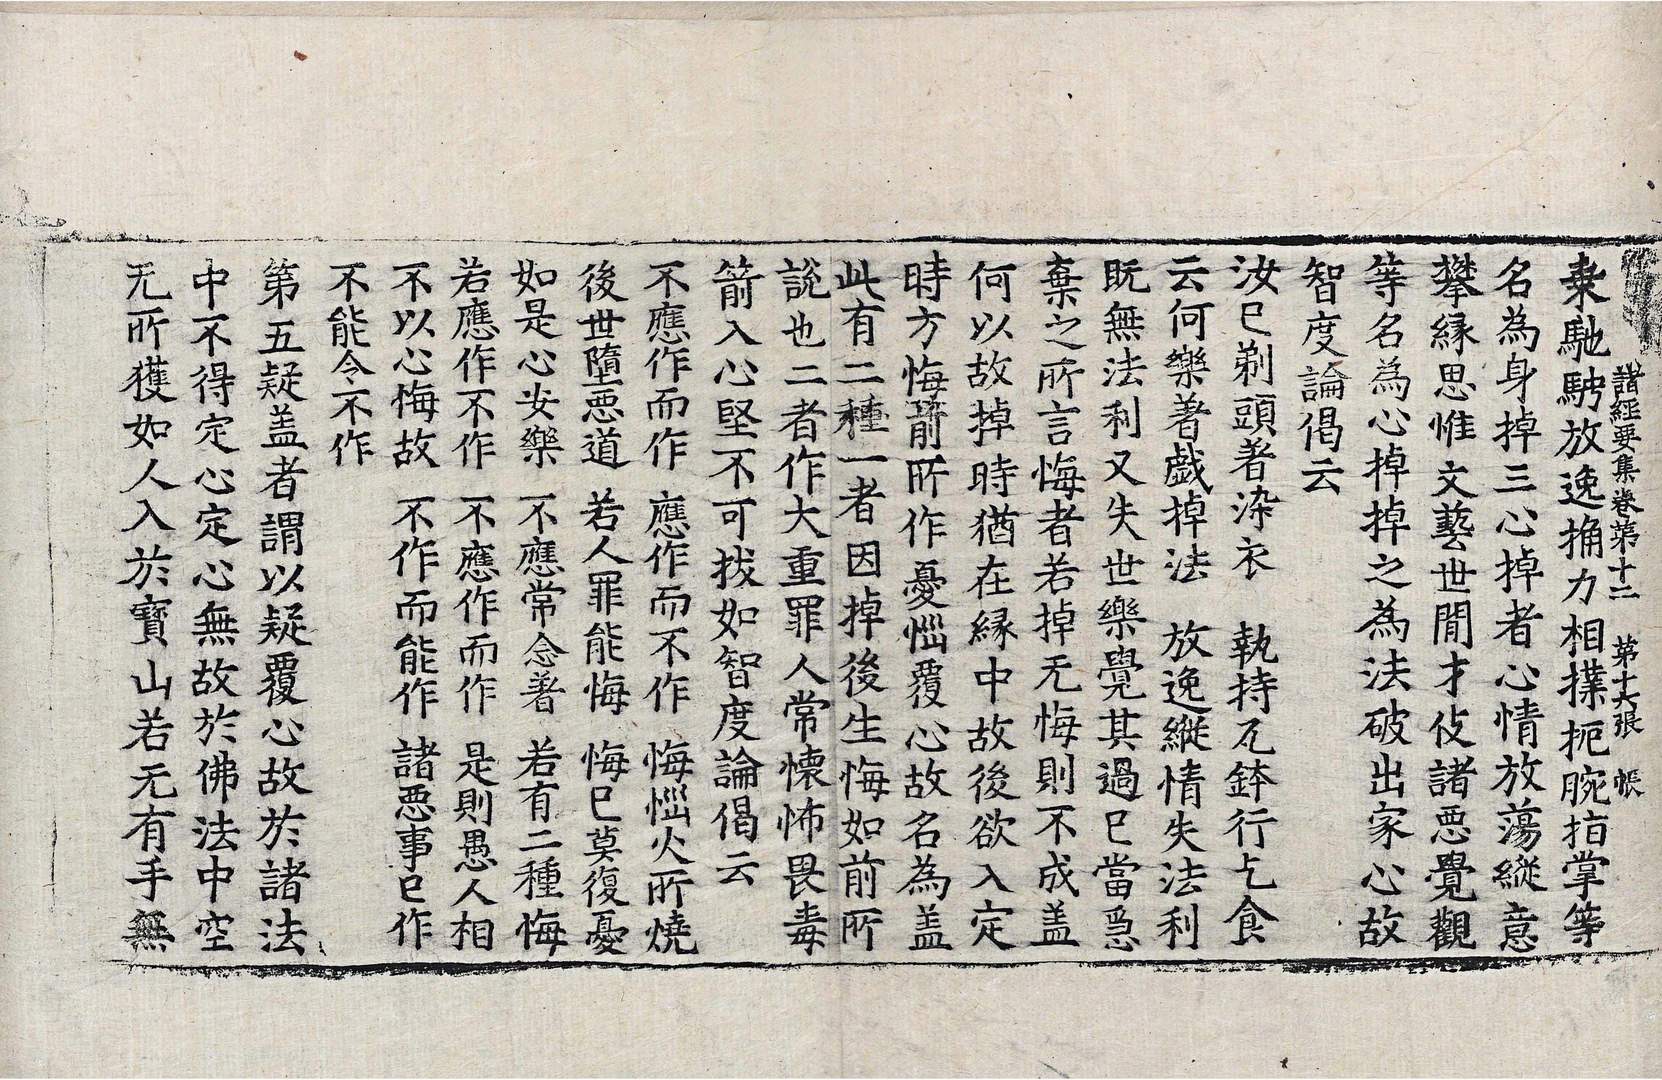 諸經要集卷第十二 第十六張 帳
乘馳騁放逸捔力相撲扼腕指掌等
名為身掉三心掉者心情放蕩縱意
攀縁思惟文藝世閒才伎諸惡覺觀
等名為心掉掉之為法破出家心故
智度論偈云
汝已剃頭著染衣 執持瓦鉢行乞食
云何樂著戲掉法 放逸縱情失法利
既無法利又失世樂覺其過已當急
棄之所言悔者若掉无悔則不成盖
何以故掉時猶在縁中故後欲入定
時方悔前所作憂惱覆心故名為盖
此有二種一者因掉後生悔如前所
說也二者作大重罪人常懐怖畏毒
箭入心堅不可拔如智度論偈云
不應作而作 應作而不作 悔惱火所燒
後世墮惡道 若人罪能悔 悔已莫復憂
如是心安樂 不應常念著 若有二種悔
若應作不作 不應作而作 是則愚人相
不以心悔故 不作而能作 諸惡事已作
不能令不作
第五疑盖者謂以疑覆心故於諸法
中不得定心定心無故於佛法中空
无所獲如人入於寶山若无有手無